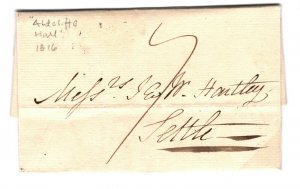 "Aldcliffe
Hall"
1816
7
Messrs J & W. Hartley
Settle